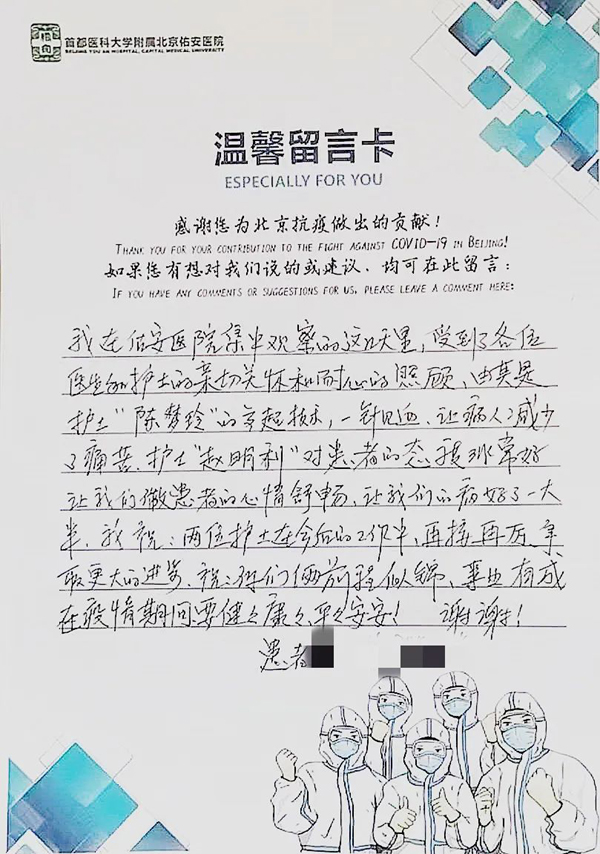 首都医科大学附属北京佑安医院
BEIJING YOU AN HOSPITAL, CAPITAL MEDICAL UNIVERSITY
温馨留言卡
ESPECIALLY FOR YOU
感谢您为北京抗疫做出的贡献！
THANK YOU FOR YOUR CONTRIBUTION TO THE FIGHT AGAINST COVID-19 IN BEIJING!
如果您有想对我们说的或建议，均可在此留言：
IF YOU HAVE ANY COMMENTS OR SUGGESTIONS FOR US, PLEASE LEAVE A COMMENT HERE:
我在佑安医院集中观察的这几天里，受到了各位
医生和护士的亲切关怀和耐心的照顾，由其是
护士“陈梦玲”的高超技术，一针见血，让病人减少
了痛苦，护士“赵明利”对患者的态度非常好
让我们做患者的心情舒畅，让我们的病好了一大
半，我祝：两位护士在今后的工作中，再接再厉，争
取更大的进步，祝：你们俩前程似锦，事业有成
在疫情期间要健健康康，平平安安！ 谢谢！
患者